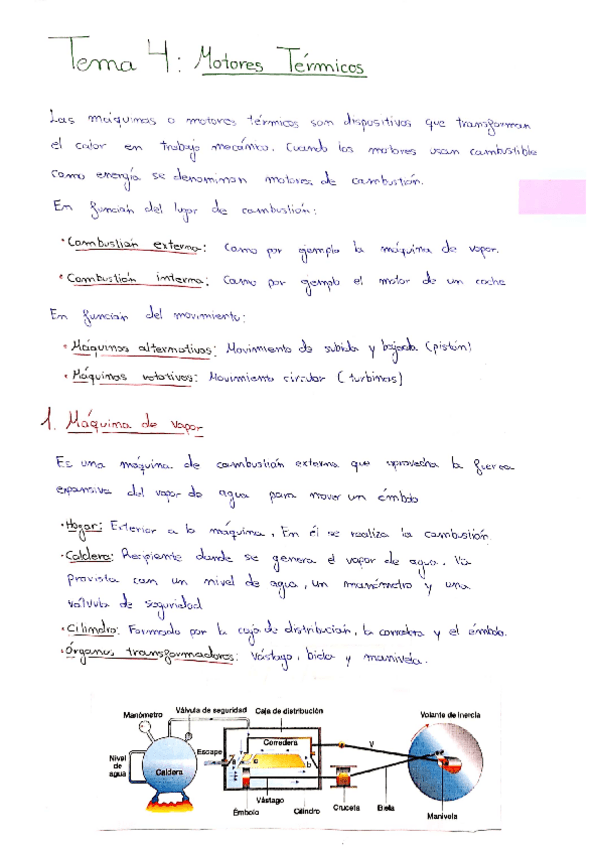 Tema 4: Motores Térmicos
Las máquinas o motores térmicos son dispositivos que transforman
el calor en trabajo mecánico. Cuando los motores usan combustible
como energía se denominan motores de combustión.
En función del lugar de combustión:
· Combustión externa: Como por ejemplo la máquina de vapor.
· Combustión interna: Como por ejemplo el motor de un coche
En función del movimiento:
· Máquinas alternativas: Movimiento de subida y bajada (pistón)
· Máquinas rotativas: Movimiento circular (turbinas)
1. Máquina de vapor
Es una máquina de combustión externa que aprovecha la fuerza
expansiva del vapor de agua para mover un émbolo
· Hogar: Exterior a la máquina. En él se realiza la combustión.
· Caldera: Recipiente donde se genera el vapor de agua. Va
provista con un nivel de agua, un manómetro y una
válvula de seguridad
· Cilindro: Formado por la caja de distribución, la corredera y el émbolo.
· Órganos transformadores: Vástago, biela y manivela.
Manómetro
Válvula de seguridad
Caja de distribución
Volante de inercia
Nivel de agua
Caldera
Escape
Corredera
a
b
V
Émbolo
Vástago
Cilindro
Cruceta
Biela
Manivela